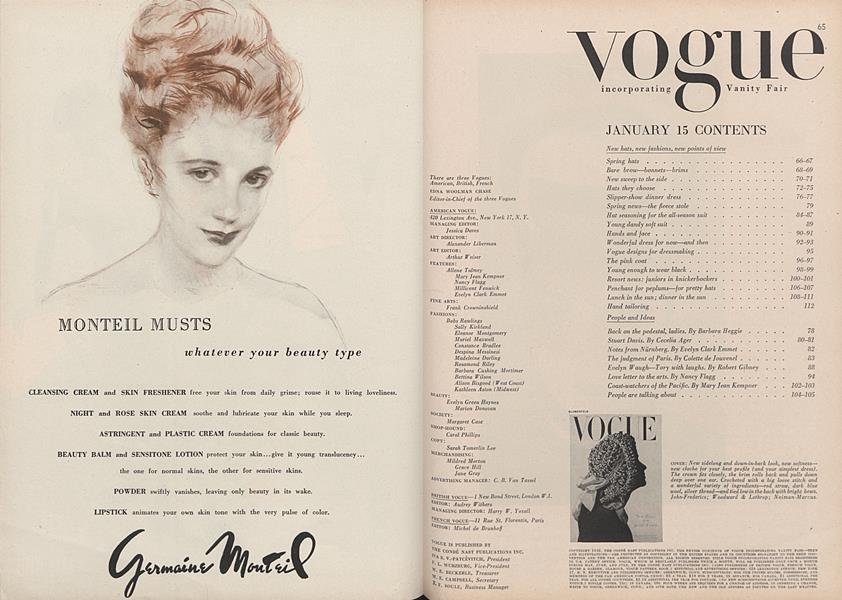 MONTEIL MUSTS
whatever your beauty type
CLEANSING CREAM and SKIN FRESHENER free your skin from daily grime; rouse it to living loveliness.
NIGHT and ROSE SKIN CREAM soothe and lubricate your skin while you sleep.
ASTRINGENT and PLASTIC CREAM foundations for classic beauty.
BEAUTY BALM and SENSITONE LOTION protect your skin...give it young translucency...
the one for normal skins, the other for sensitive skins.
POWDER swiftly vanishes, leaving only beauty in its wake.
LIPSTICK animates your own skin tone with the very pulse of color.
Germaine Monteil
There are three Vogues:
American, British, French
EDNA WOOLMAN CHASE
Editor-in-Chief of the three Vogues
AMERICAN VOGUE:
420 Lexington Ave., New York 17, N. Y.
MANAGING EDITOR:
Jessica Daves
ART DIRECTOR:
Alexander Liberman
ART EDITOR:
Arthur Weiser
FEATURES:
Allene Talmey
Mary Jean Kempner
Nancy Flagg
Millicent Fenwick
Evelyn Clark Emmet
FINE ARTS:
Frank Crowninshield
FASHIONS:
Babs Rawlings
Sally Kirkland
Eleanor Montgomery
Muriel Maxwell
Constance Bradlee
Despina Messinesi
Madeleine Darling
Rosamond Riley
Barbara Cushing Mortimer
Bettina Wilson
Alison Bisgood (West Coast)
Kathleen Aston (Midwest)
BEAUTY:
Evelyn Green Haynes
Marion Donovan
SOCIETY:
Margaret Case
SHOP-HOUND:
Carol Phillips
COPY:
Sarah Tomerlin Lee
MERCHANDISING:
Mildred Morton
Grace Hill
Jane Gray
ADVERTISING MANAGER: C. B. Van Tassel
BRITISH VOGUE—1 New Bond Street, London W.1.
EDITOR: Audrey Withers
MANAGING DIRECTOR: Harry W. Yoxall
FRENCH VOGUE—11 Rue St. Florentin, Paris
EDITOR: Michel de Brunhoff
VOGUE IS PUBLISHED BY
THE CONDÉ NAST PUBLICATIONS INC.
IVA S. V.-PATCÉVITCH, President
F. L. WURZBURG, Vice-President
W. E. BECKERLE, Treasurer
M. E. CAMPBELL, Secretary
F. F. SOULE, Business Manager
65
vogue
incorporating Vanity Fair
JANUARY 15 CONTENTS
New hats, new fashions, new points of view
Spring hats 66-67
Bare brow—bonnets—brims 68-69
New sweep to the side 70-71
Hats they choose 72-75
Slipper-show dinner dress 76-77
Spring news—the fleece stole 79
Hat seasoning for the all-season suit 84-87
Young dandy soft suit 89
Hands and face 90-91
Wonderful dress for now—and then 92-93
Vogue designs for dressmaking 95
The pink coat 96-97
Young enough to wear black 98-99
Resort news: juniors in knickerbockers 100-101
Penchant for peplums—for pretty hats 106-107
Lunch in the sun; dinner in the sun 108-111
Hand tailoring 112
People and Ideas
Back on the pedestal, ladies. By Barbara Heggie 78
Stuart Davis. By Cecelia Ager 80-81
Notes from Nürnberg. By Evelyn Clark Emmet 82
The judgment of Paris. By Colette de Jouvenel 83
Evelyn Waugh—Tory with laughs. By Robert Gibney 88
Love letter to the arts. By Nancy Flagg 94
Coast-watchers of the Pacific. By Mary Jean Kempner 102-103
People are talking about 104-105
BLUMENFELD
VOGUE
COVER: New sidelong and down-in-back look, new setness—
new cloche for your best profile (and your simplest dress).
The crown fits closely, the brim rolls back and pulls down
deep over one ear. Crocheted with a big loose stitch and
a wonderful variety of ingredients—red straw, dark blue
wool, silver thread—and tied low in the back with bright bows.
John-Frederics; Woodward & Lothrop; Neiman-Marcus.